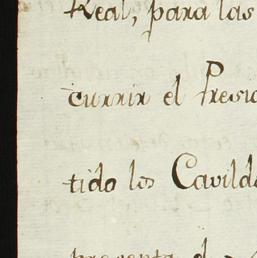 Real, para las
currir el Presid
tido los Cavild